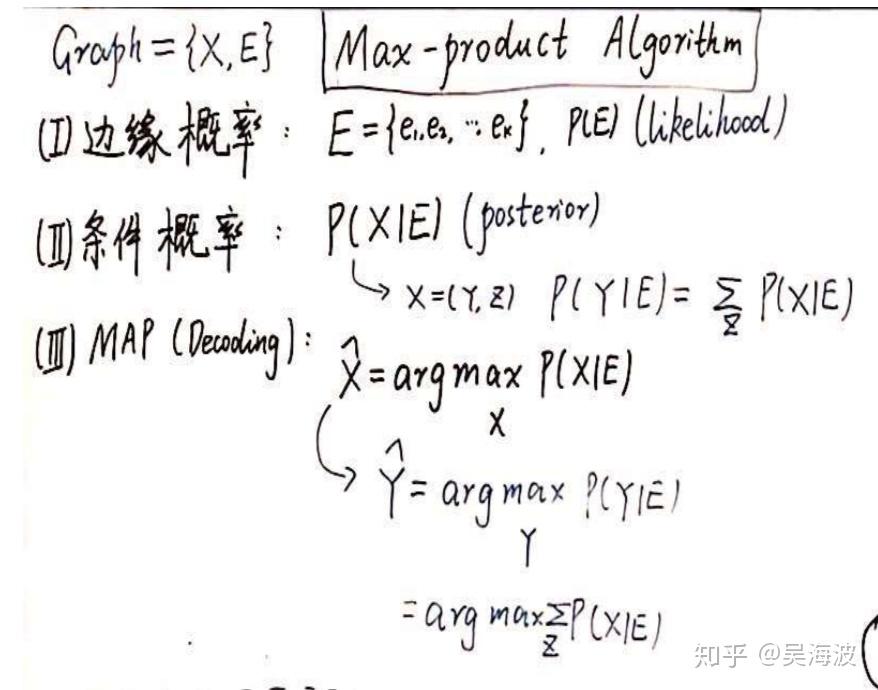 Graph={X,E} Max-product Algorithm
(I)边缘概率: E={e₁,e₂,…eₖ}, P(E) (likelihood)
(II)条件概率: P(X|E) (posterior)
↳ X=(Y,Z) P(Y|E)=∑_Z P(X|E)
(III) MAP (Decoding): X̂=argmax_X P(X|E)
↳ Ŷ=argmax_Y P(Y|E)
=argmax∑_Z P(X|E)
知乎 @吴海波